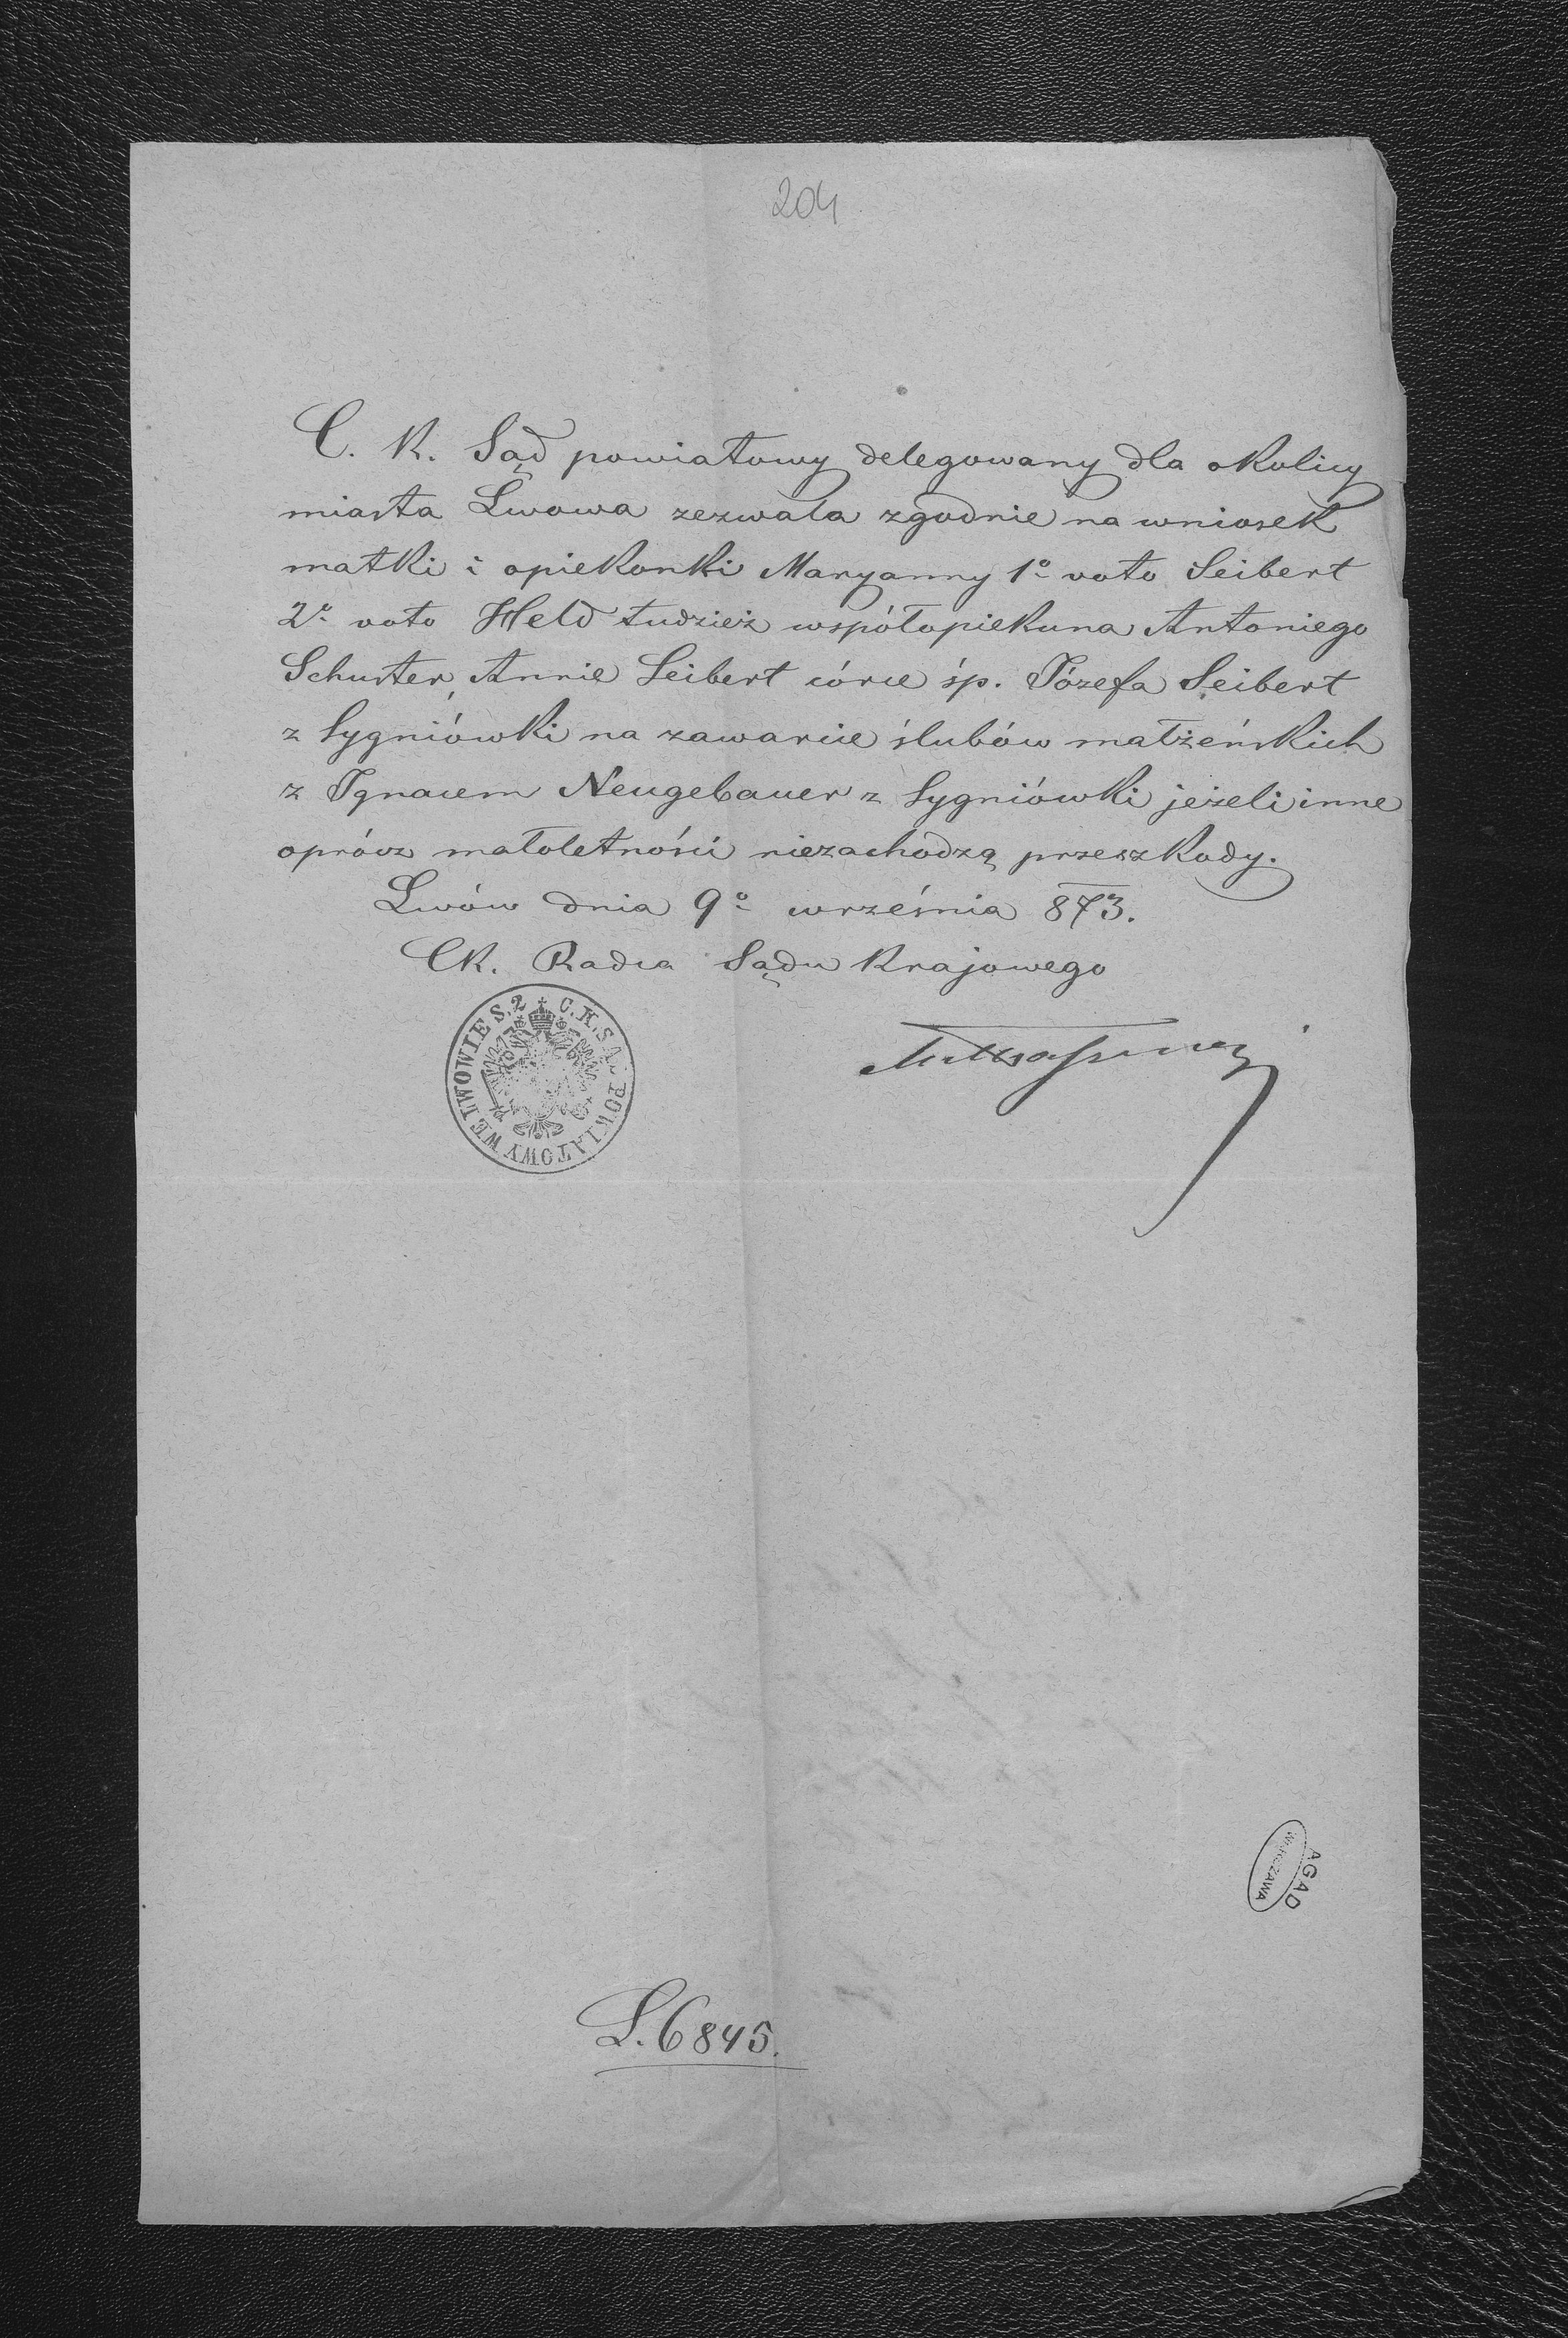 204
C. K. Sąd powiatowy delegowany dla okolicy
miasta Lwowa zezwala zgodnie na wniosek
matki i opiekonki Maryanny 1º voto Seibert
2º voto Held tudzież współopiekuna Antoniego
Schuster, Annie Seibert córce śp. Józefa Seibert
z Sygniówki na zawarcie ślubów małżeńskich
z Ignacem Neugebauer z Sygniówki jeżeli inne
oprócz małoletności niezachodzą przeszkody.
Lwów dnia 9º września 873.
CK. Radca Sądu Krajowego
C. K. SĄD POWIATOWY WE LWOWIE S. 2
AGAD
WARSZAWA
L. 6845.